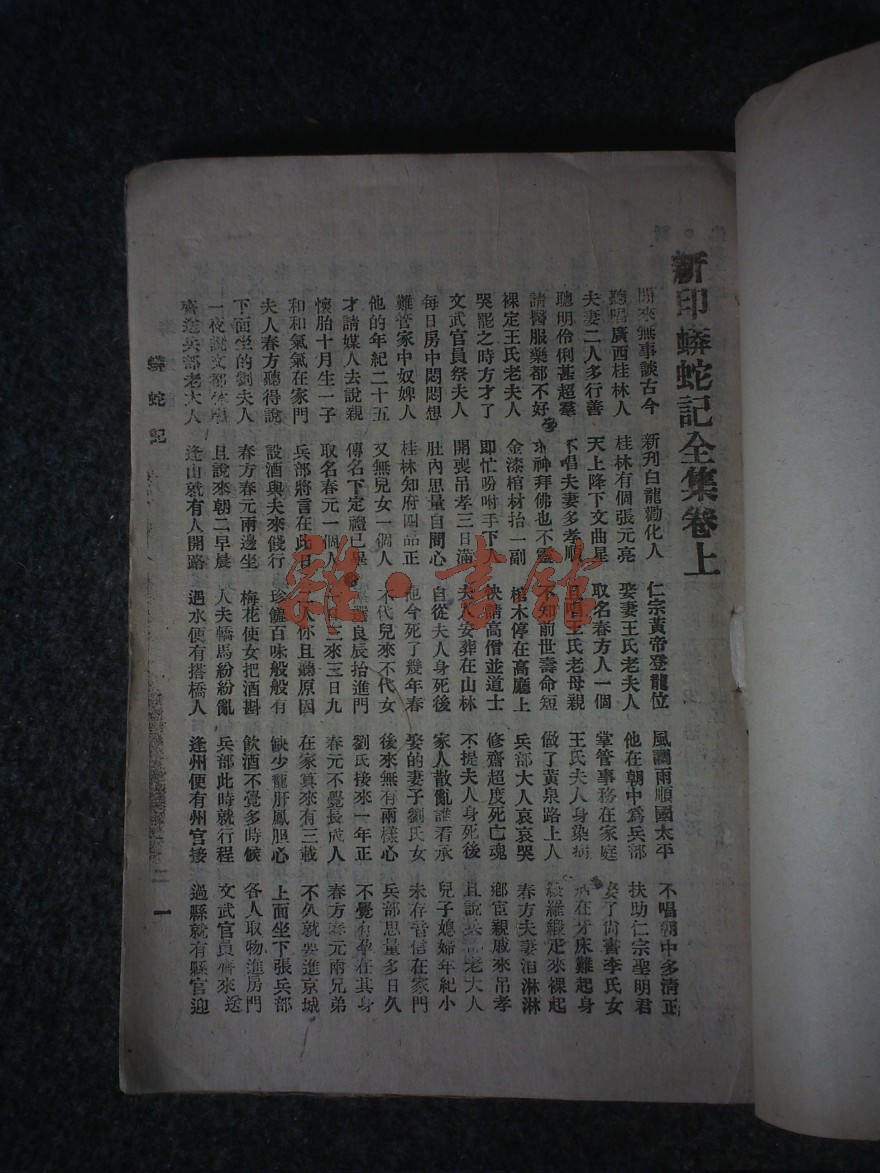 新印蟒蛇記全集卷上
閒來無事談古今 新刊白龍勸化人 仁宗黃帝登龍位 風調雨順國太平 不唱朝中多清正
聽唱廣西桂林人 桂林有個張元亮 娶妻王氏老夫人 他在朝中爲兵部 扶助仁宗聖明君
夫妻二人多行善 天上降下文曲星 取名春方人一個 掌管事務在家庭 娶了尚書李氏女
聰明伶俐甚超羣 不唱夫妻多孝順 唱王氏老母親 王氏夫人身染病 病在牙床難起身
請醫服藥都不好 求神拜佛也不靈 不知前世壽命短 做了黃泉路上人 綾羅緞疋來裸起
裸定王氏老夫人 金漆棺材抬一副 棺木停在高廳上 兵部大人哀哀哭 春方夫妻泪淋淋
哭罷之時方才了 即忙吩咐手下人 快請高僧並道士 修齋超度死亡魂 鄉宦親戚來吊孝
文武官員祭夫人 開喪吊孝三日滿 夫人安葬在山林 不提夫人身死後 且說兵部老大人
每日房中悶悶想 肚內思量自間心 自從夫人身死後 家人散亂誰看承 兒子媳婦年紀小
難管家中奴婢人 桂林知府四品正 他今死了幾年春 娶的妻子劉氏女 未存音信在家門
他的年紀二十五 又無兒女一個人 不代兒來不代女 後來無有兩樣心 兵部思量多日久
才請媒人去說親 傳名下定禮已畢 選良辰抬進門 劉氏接來一年正 不覺有孕在其身
懷胎十月生一子 取名春元一個人 三來三日九 春元不覺長成人 春方春元兩兄弟
和和氣氣在家門 兵部將言在此日 人你且聽原因 在家算來有三載 不久就要進京城
夫人春方聽得說 設酒與夫來餞行 珍饈百味般般有 缺少龍肝鳳胆心 上面坐下張兵部
下面坐的劉夫人 春方春元兩邊坐 梅花使女把酒斟 飲酒不覺多時候 各人取物進房門
一夜說文都 且說來朝二早晨 人夫轎馬紛紛亂 兵部此時就行程 文武官員齊來送
齊送兵部老大人 逢山就有人開路 遇水便有搭橋人 逢州便有州官接 過縣就有縣官迎
蟒蛇記
一
雜·書館